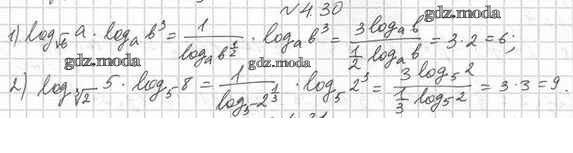 №4.30
gdz.moda
1) log_√b a · log_a b³ = 1/(log_a b^(1/2)) · log_a b³ = (3 log_a b)/(1/2 log_a b) = 3·2 = 6;
gdz.moda gdz.moda
2) log_∛2 5 · log_5 8 = 1/(log_5 2^(1/3)) · log_5 2³ = (3 log_5 2)/(1/3 log_5 2) = 3·3 = 9.
gdz.moda gdz.moda